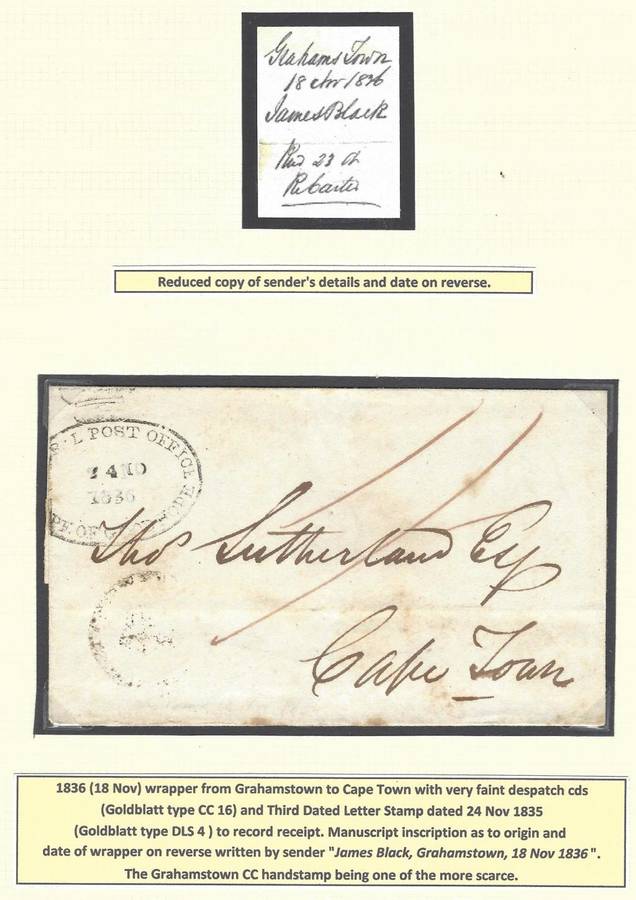 Grahams Town
18 Nov 1836
James Black
23
Reduced copy of sender's details and date on reverse.
L POST OFFICE
24 NO
1836
Thos Sutherland Esq
Cape Town
1836 (18 Nov) wrapper from Grahamstown to Cape Town with very faint despatch cds
(Goldblatt type CC 16) and Third Dated Letter Stamp dated 24 Nov 1835
(Goldblatt type DLS 4 ) to record receipt. Manuscript inscription as to origin and
date of wrapper on reverse written by sender "James Black, Grahamstown, 18 Nov 1836".
The Grahamstown CC handstamp being one of the more scarce.